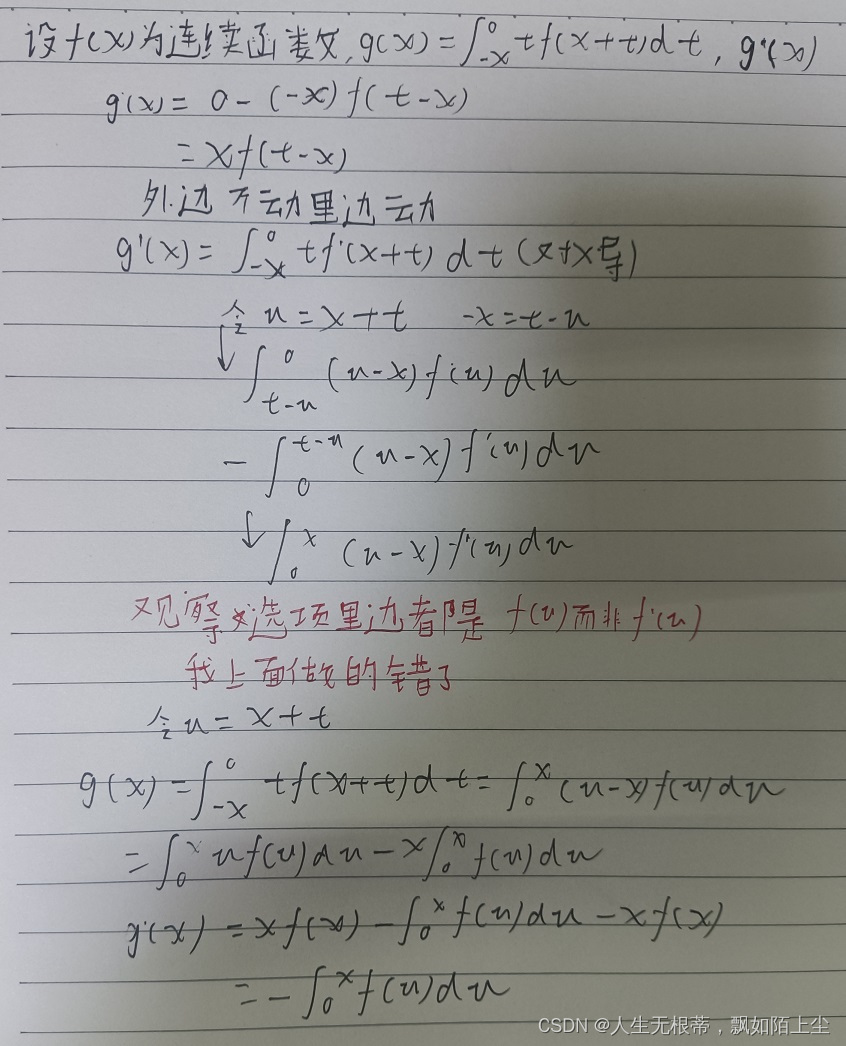 设f(x)为连续函数,g(x)=∫₋ₓ⁰ tf(x+t)dt, g'(x)
g'(x)= 0-(-x)f(t-x)
=xf(t-x)
外边不动里边动
g'(x)=∫₋ₓ⁰ tf'(x+t)dt(对x导)
令u=x+t -x=t-u
↓∫ₜ₋ᵤ⁰ (u-x)f'(u)du
-∫₀ᵗ⁻ᵘ(u-x)f'(u)du
↓∫₀ˣ (u-x)f'(u)du
观察选项里边都是 f(u)而非f'(u)
我上面做的错了
令u=x+t
g(x)=∫₋ₓ⁰ tf(x+t)dt=∫₀ˣ(u-x)f(u)du
=∫₀ˣuf(u)du-x∫₀ˣf(u)du
g'(x)=xf(x)-∫₀ˣf(u)du-xf(x)
=-∫₀ˣf(u)du
CSDN @人生无根蒂，飘如陌上尘